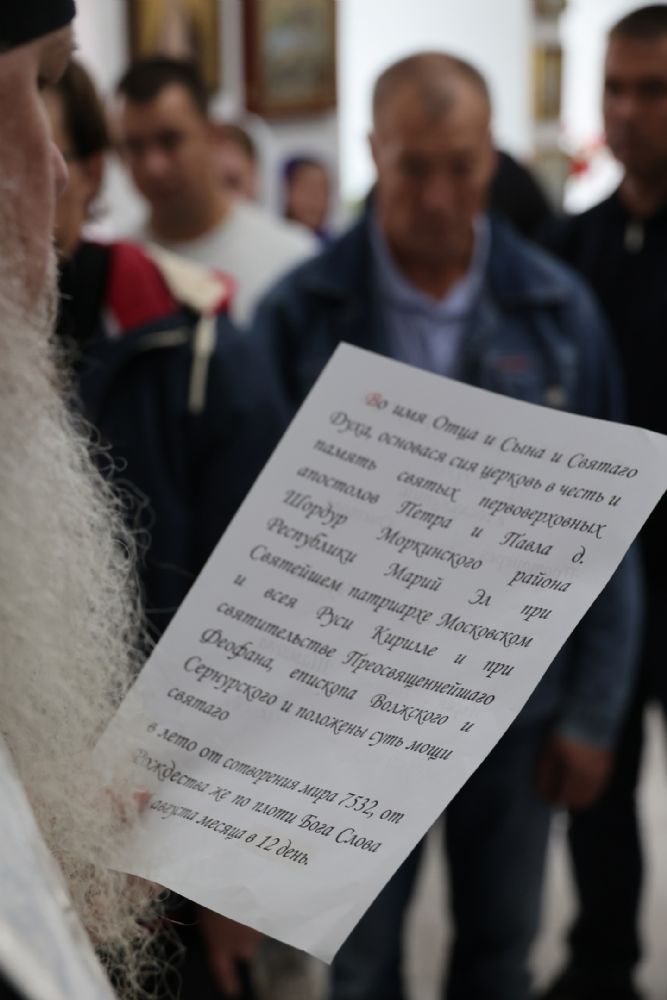 Во имя Отца и Сына и Святаго
Духа, основася сия церковь в честь и
память святых первоверховных
апостолов Петра и Павла д.
Шордур Моркинского района
Республики Марий Эл при
Святейшем патриархе Московском
и всея Руси Кирилле и при
святительстве Преосвященнейшаго
Феофана, епископа Волжского и
Сернурского и положены суть мощи
святаго
в лето от сотворения мира 7532, от
Рождества же по плоти Бога Слова
августа месяца в 12 день.